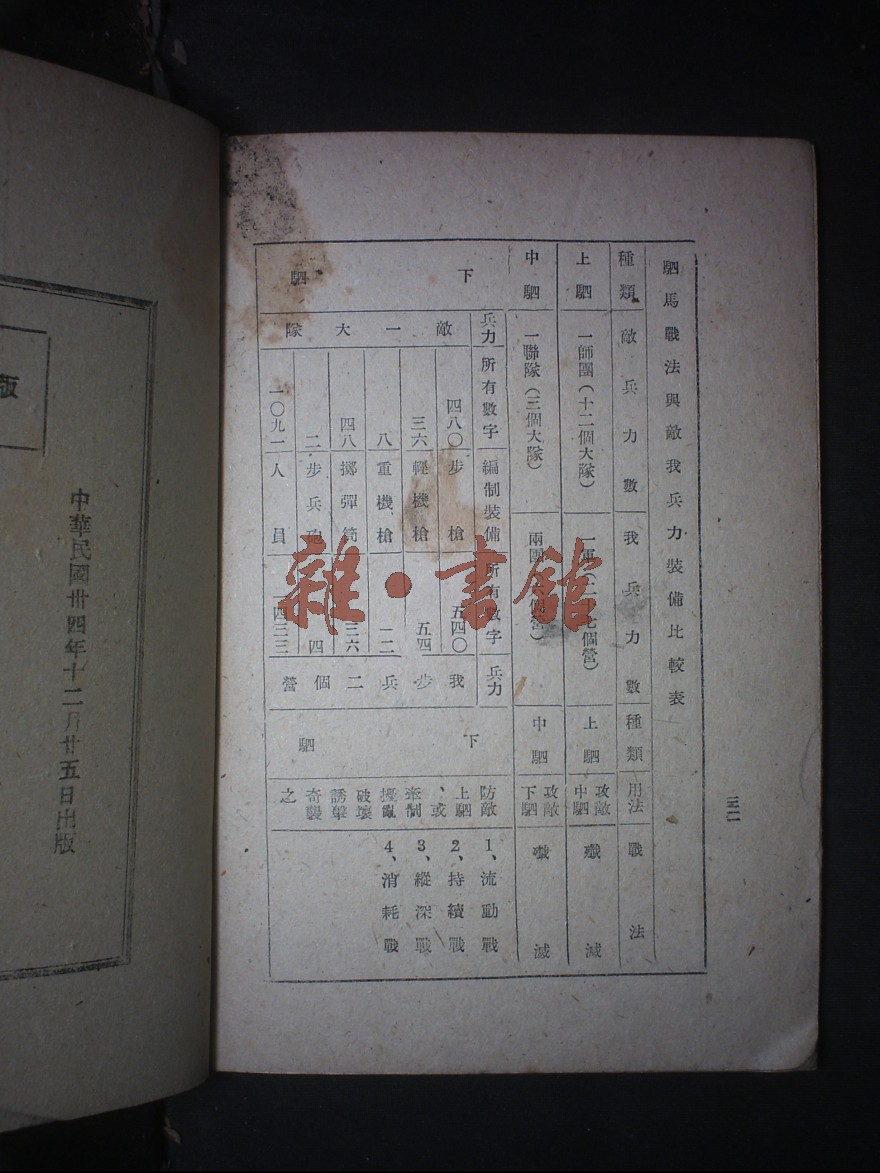 駟馬戰法與敵我兵力裝備比較表
種類 敵兵力數 我兵力數 種類 用法 戰法
上駟 一師團(十二個大隊) 一軍(二十七個營) 上駟 攻敵中駟 殲滅
中駟 一聯隊(三個大隊) 兩團(六個營) 中駟 攻敵下駟 殲滅
下駟 下駟
兵力 所有數字 編制裝備 所有數字 兵力
敵一大隊 我步兵二個營
四八〇 步槍 五四〇
三六 輕機槍 五四
八 重機槍 一二
四八 擲彈筒 三六
二 步兵砲 四
一〇九一 人員 一四三三
防敵上駟、或牽制擾亂破壞誘擊奇襲之
1、流動戰
2、持續戰
3、縱深戰
4、消耗戰
三二
版
中華民國卅四年十二月廿五日出版
雜·書館